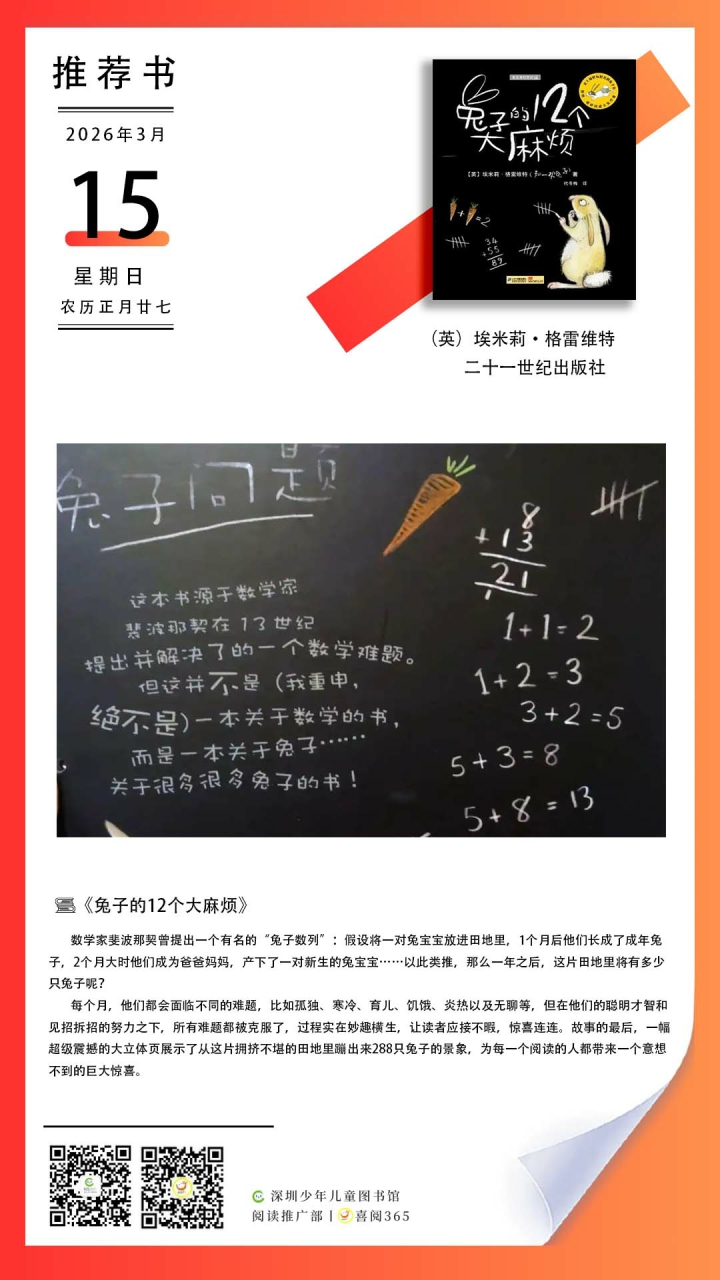 推荐书
2026年3月
15
星期日
农历正月廿七
兔子的12个
大麻烦
【英】埃米莉·格雷维特(和一大群兔子)著
代冬梅 译
1+1=2
34
+55
89
（英）埃米莉·格雷维特
二十一世纪出版社
兔子问题
这本书源于数学家
裴波那契在13世纪
提出并解决了的一个数学难题。
但这并不是（我重申，
绝不是）一本关于数学的书，
而是一本关于兔子……
关于很多很多兔子的书！
8
+13
21
1+1=2
1+2=3
3+2=5
5+3=8
5+8=13
《兔子的12个大麻烦》
数学家斐波那契曾提出一个有名的“兔子数列”：假设将一对兔宝宝放进田地里，1个月后他们长成了成年兔
子，2个月大时他们成为爸爸妈妈，产下了一对新生的兔宝宝……以此类推，那么一年之后，这片田地里将有多少
只兔子呢？
每个月，他们都会面临不同的难题，比如孤独、寒冷、育儿、饥饿、炎热以及无聊等，但在他们的聪明才智和
见招拆招的努力之下，所有难题都被克服了，过程实在妙趣横生，让读者应接不暇，惊喜连连。故事的最后，一幅
超级震撼的大立体页展示了从这片拥挤不堪的田地里蹦出来288只兔子的景象，为每一个阅读的人都带来一个意想
不到的巨大惊喜。
深圳少年儿童图书馆
阅读推广部丨喜阅365